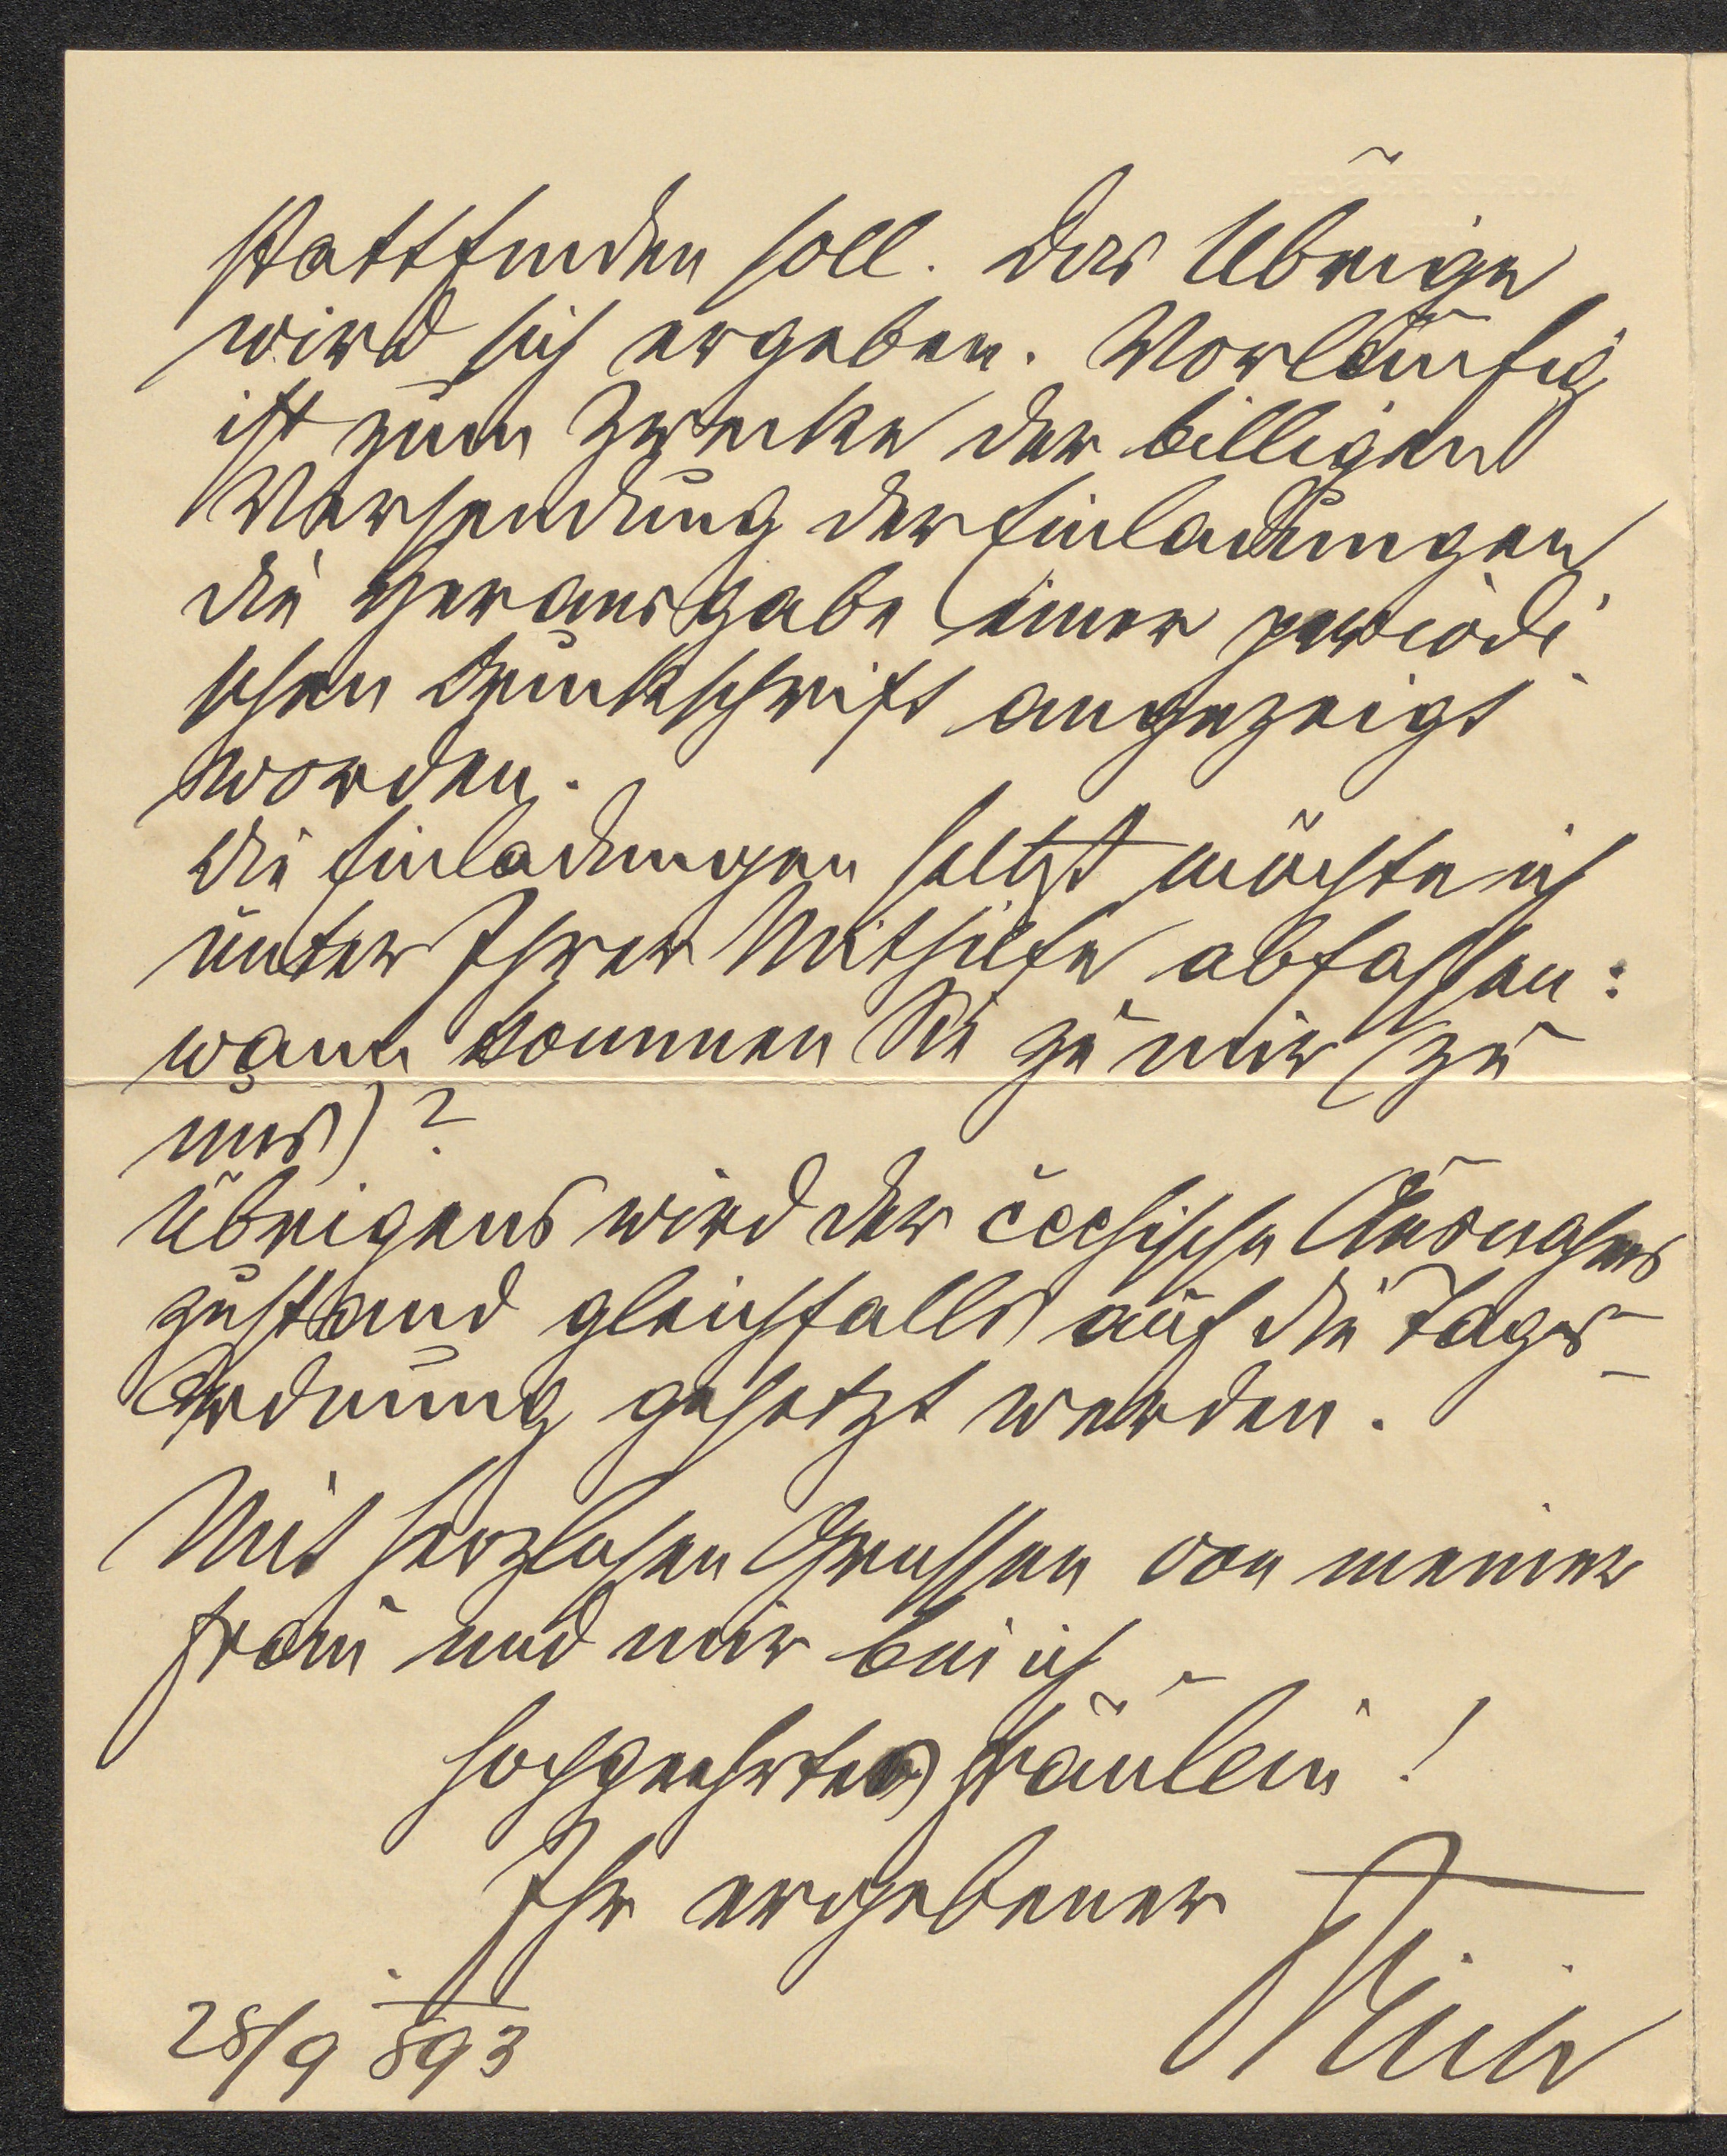 stattfinden soll. Das Übrige
wird sich ergeben. Vorläufig
ist zum Zwecke der billigen
Versendung der Einladungen
die Herausgabe einer periodi
schen Druckschrift angezeigt
worden.
Die Einladungen selbst möchte ich
unter Ihrer Mithilfe abfassen:
wann kommen Sie zu mir (zu
uns)?
Übrigens wird der čechische Ausnahms
zustand gleichfalls auf die Tages-
Ordnung gesetzt werden.
Mit herzlichen Grussen von meiner
Frau und mir bin ich
hochgeehrtes Fräulein!
Ihr ergebener
28/9 893